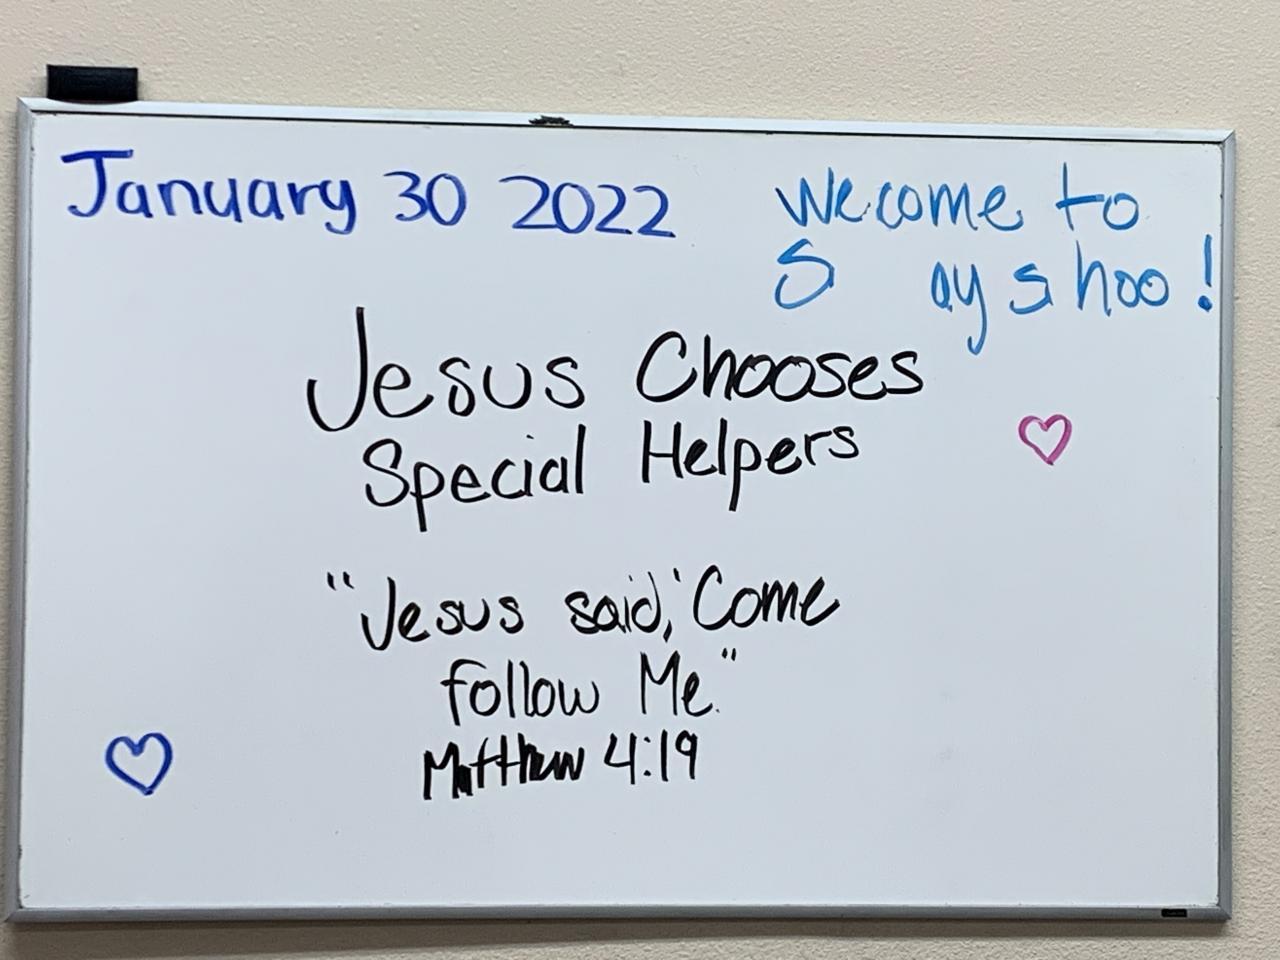 January 30 2022
Wecome to
S ay s hoo !
Jesus Chooses
Special Helpers
"Jesus said, 'Come
follow Me."
Matthew 4:19